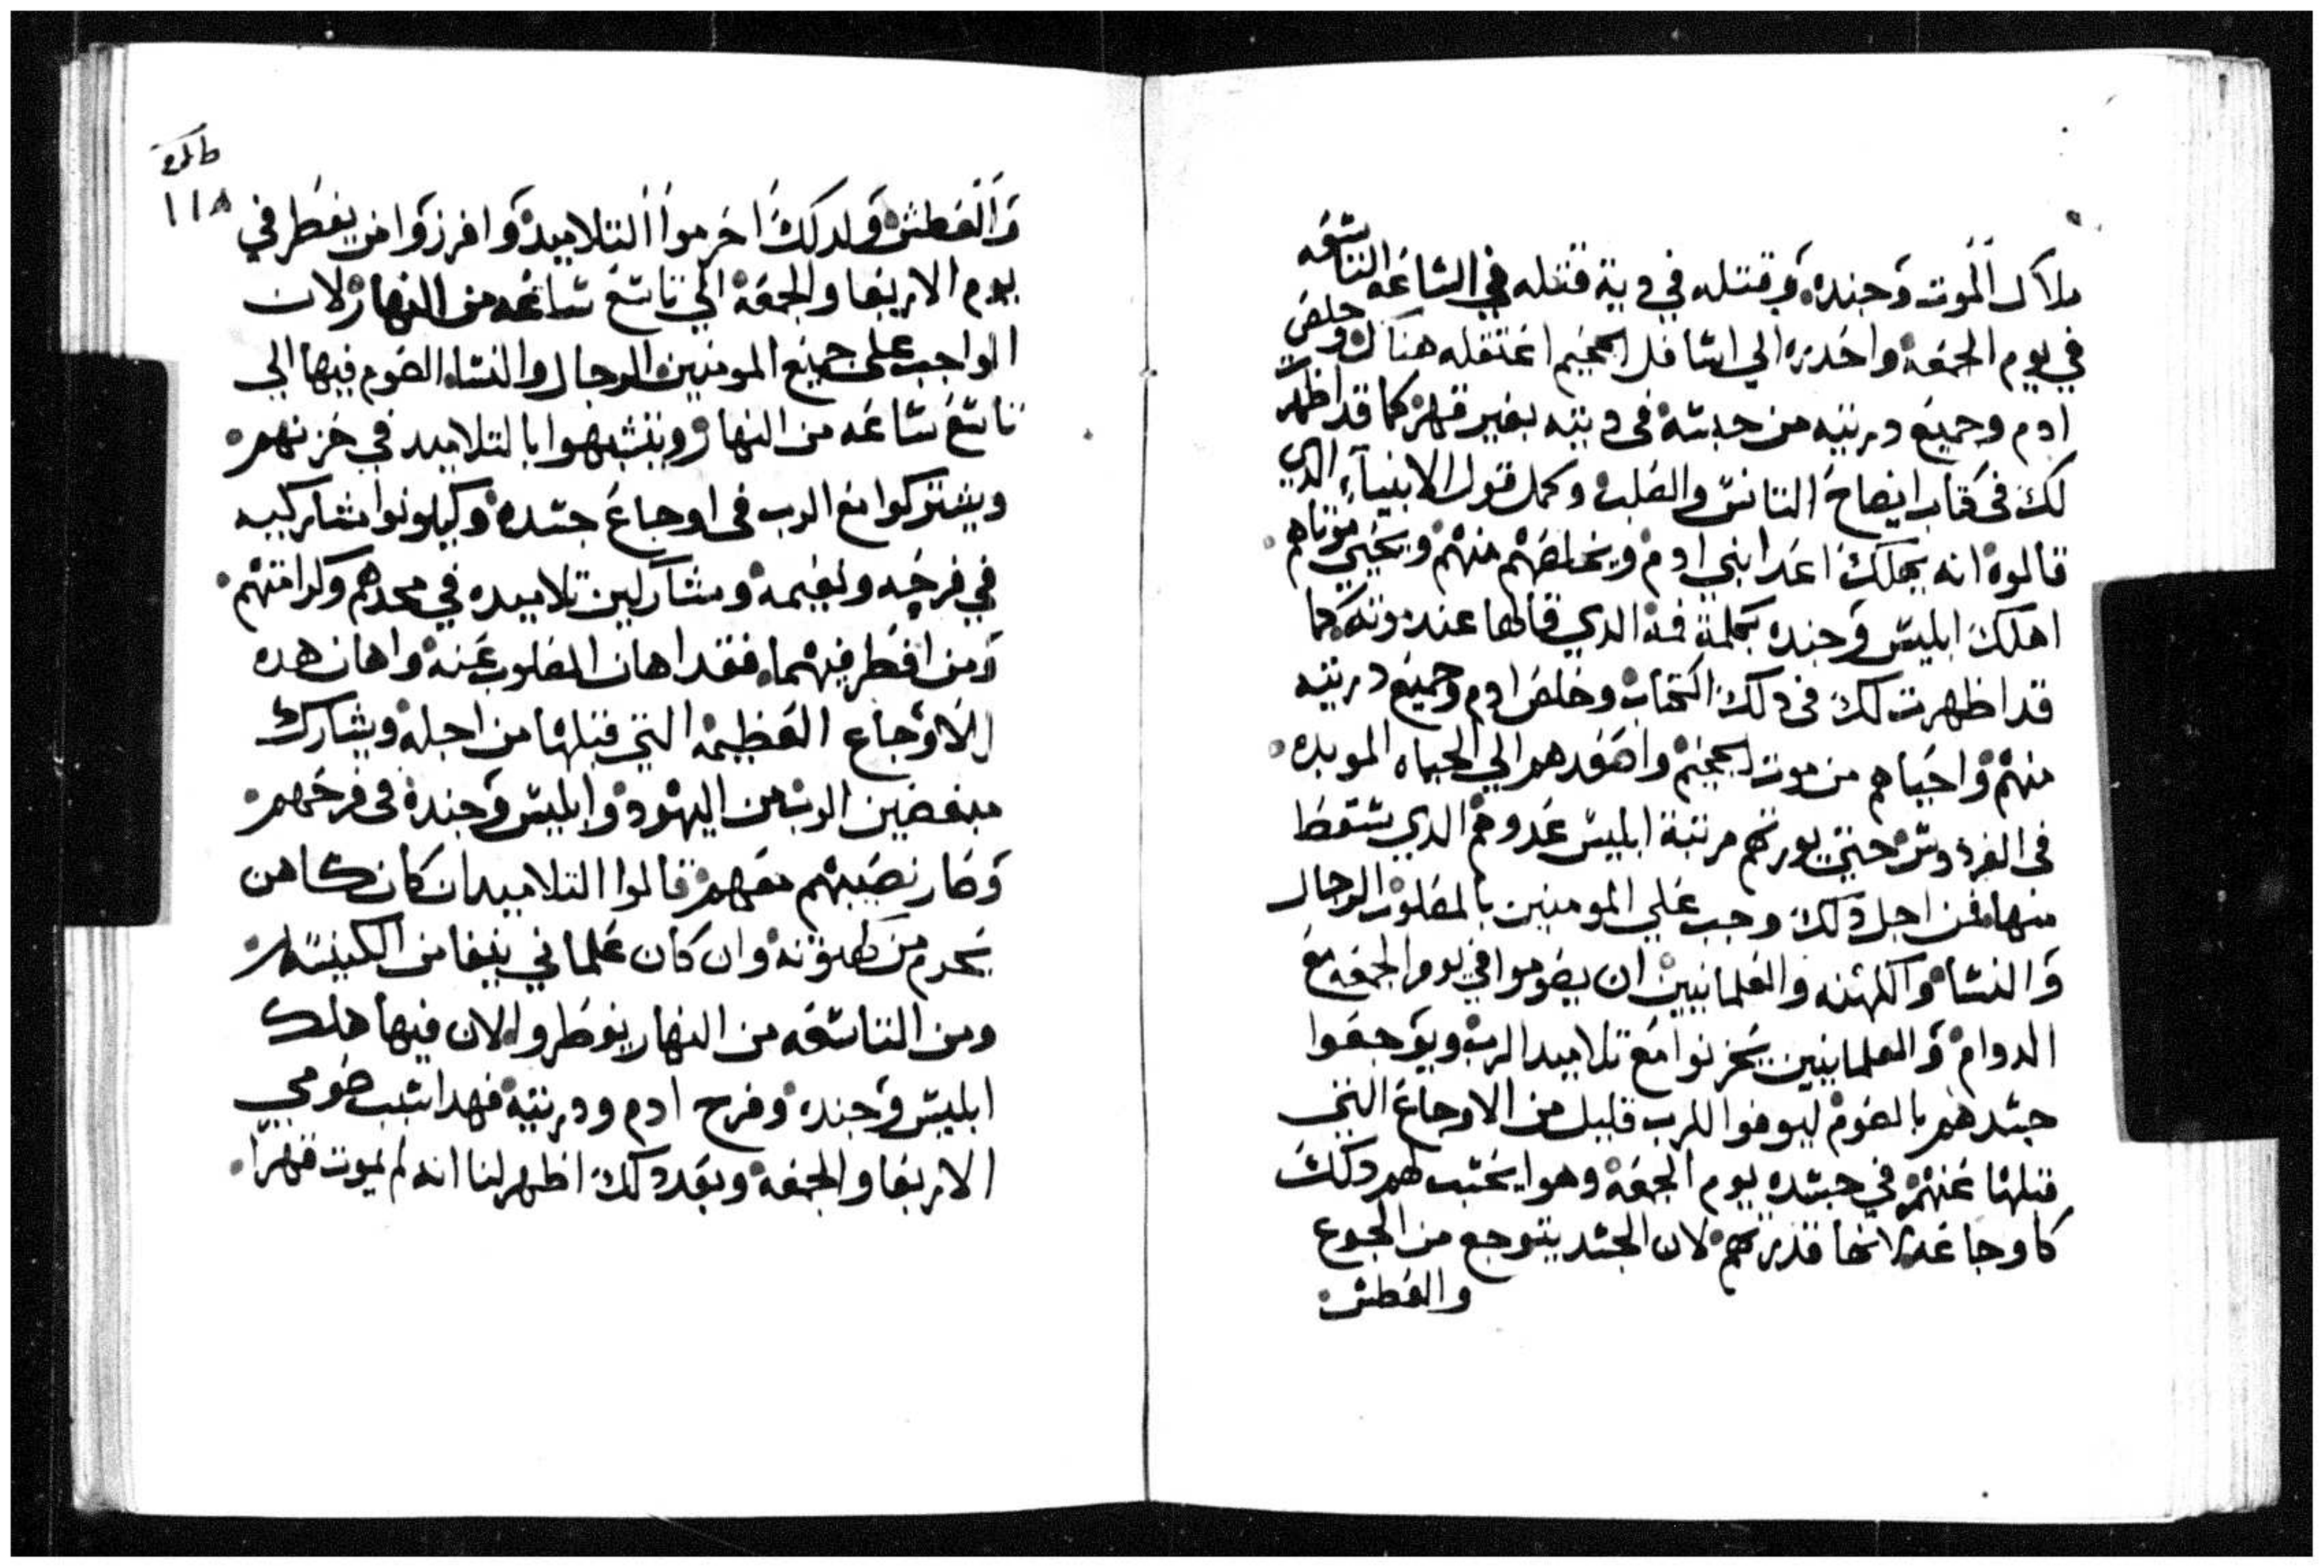 ملاك الموت وجنده وقتله في دية قتله في الساعه التاسعه
في يوم الجمعة واحدره الي اسافل الجحيم اعتقله هناك وخلص
ادم وجميع دريته من حبسه في ديته بغير قهر كما قد اظهرت
لك في كتاب ايضاح التانس والصلب وكمل قول الانبياء الدي
قالوه انه يهلك اعدا بني ادم ويخلصهم منهم ويحيي موتاهم
اهلك ابليس وجنده بكلمة فه الدي قالها عند موته كما
قد اظهرت لك في دلك الكتاب وخلص ادم وجميع دريته
منهم واحياهم من موت الجحيم واصعدهم الي الحياه الموبده
في الفردوس حتي يورثهم مرتبة ابليس عدوهم الدي سقط
منها فمن اجل دلك وجب علي المومنين بالمصلوب الرجال
والنسا والكهنه والعلمانيين ان يصوموا في يوم الجمعه مع
الدوام والعلمانيين يحزنوا مع تلاميد الرب ويوجعوا
جسدهم بالصوم ليوفوا للرب قليل من الاوجاع التي
قبلها عنهم في جسده يوم الجمعة وهوا يحتسب لهم دلك
كاوجاعه لانها قدرتهم لان الجسد يتوجع من الجوع
والعطش
١١٨
والعطش ولدلك احرموا التلاميد وافرزوا من يفطر في
يوم الاربعا والجمعة الي تاسع ساعه من النهار لان
الواجب على جميع المومنين الرجال والنسا الصوم فيها الي
تاسع ساعه من النهار ويتشبهوا بالتلاميد في حزنهم
ويشتركوا مع الرب في اوجاع جسده وكيلونوا مشاركيه
في فرحه ونعيمه ومشاركين تلاميده في مجدهم وكرامتهم
ومن افطر فيهما فقد اهان المصلوب عنه واهان هده
الاوجاع العظيمه التي قبلها من اجله ويشارك
مبغضين الرب من اليهود وابليس وجنده في فرحهم
وصار نصيبهم معهم قالوا التلاميد ان كان كاهن
يحرم من كهنوته وان كان علماني ينفا من الكنيسه
ومن التاسعه من النهار يفطروا لان فيها هلك
ابليس وجنده وفرح ادم ودريته فهدا سبب صومي
الاربعا والجمعة وبعد دلك اظهر لنا انه لم يموت قهرا